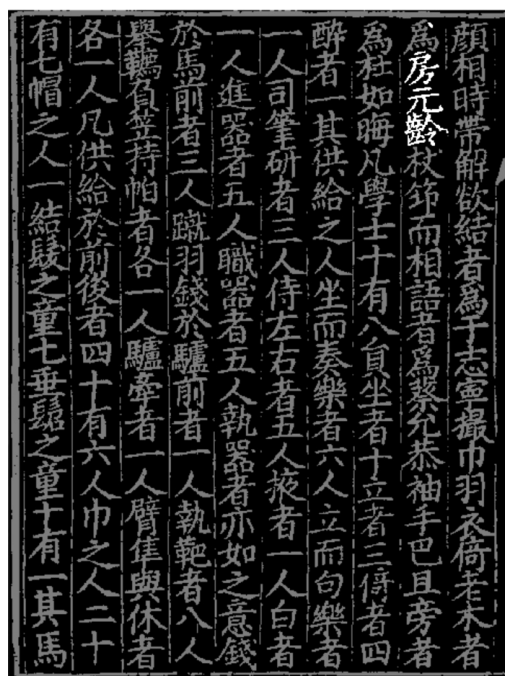 顏相時帶解欲結者為于志寧攝巾羽衣倚老木者
為房元齡杖笻而相語者為蔡允恭袖手巴且旁者
為杜如晦凡學士十有八負坐者十立者三倚者四
醉者一其供給之人坐而奏樂者六人立而句樂者
一人司筆研者三人侍左右者五人掖者一人白者
一人進器者五人職器者五人執器者亦如之意錢
於馬前者三人蹴羽錢於驢前者一人執靶者八人
舉轎負笠持帕者各一人驢牽者一人臂隼與休者
各一人凡供給於前後者四十有六人巾之人二十
有七帽之人一結髮之童七垂髫之童十有一其馬